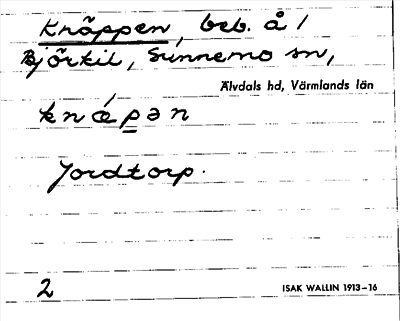 Knäppen, beb. å 1
Björkil, Sunnemo sn,
Älvdals hd, Värmlands län
knǽpən
Jordtorp.
2
ISAK WALLIN 1913–16